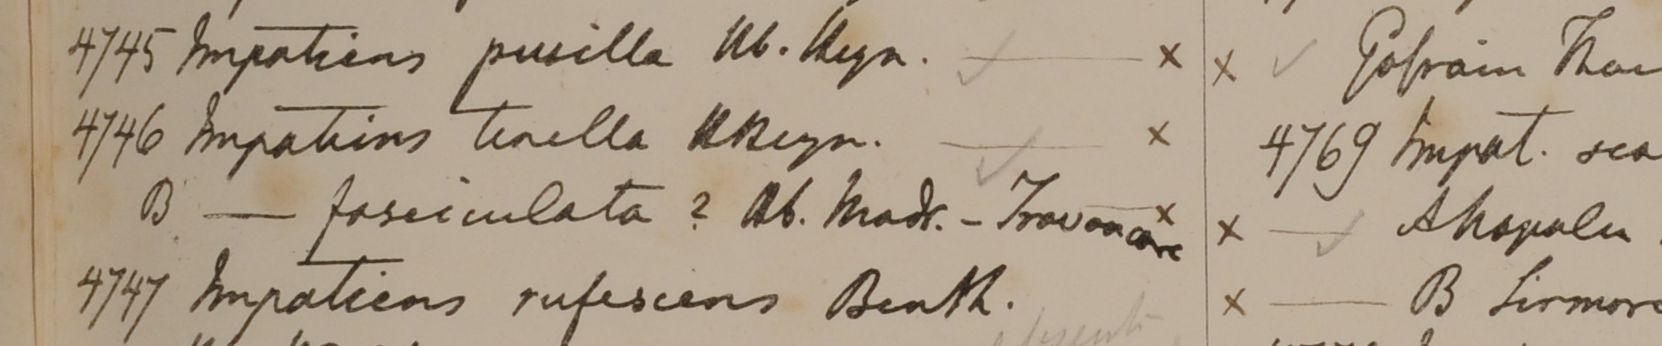 4745 Impatiens pusilla Hb. Heyn. ✓ — x
4746 Impatiens tenella HHeyn. ✓ — x
B — fasciculata ? Hb. Madr. - Travancore x
4747 Impatiens rufescens Benth.
x ✓
4769 Impat. sca
x — ✓
x — B Sirmore